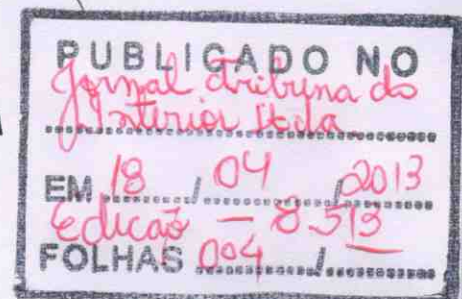 PUBLICADO NO
Jornal Tribuna do
Interior Ltda
EM 18 / 04 / 2013
Edicaõ - 8.513
FOLHAS 004 /